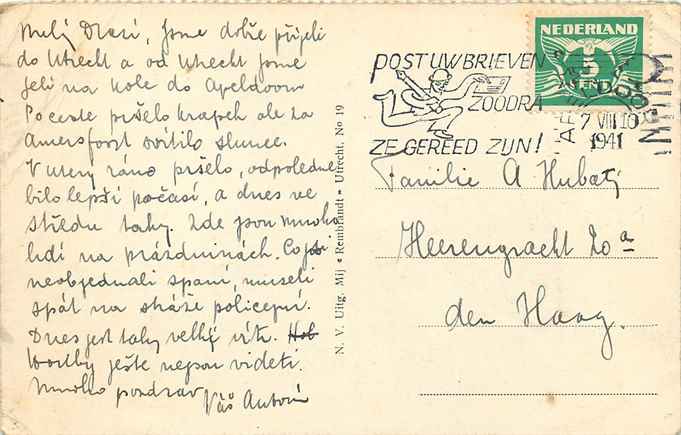 Milý Drazí, jsme dobře přijeli
do Utrecht a od Utrecht jsme
jeli na kole do Apeldoorn
Po cestě pršelo krapek ale za
Amersfoort svítilo slunce.
V uterý ráno pršelo, odpoledne
bilo lepší počasí, a dnes ve
středu taky. Zde jsou mnoho
lidí na prázdninách. Co jsi
neobjednali spaní, museli
spát na stráže policejní.
Dnes jest taky velký vítr.
ještě nejsou videti.
Mnoho pozdrav
Váš Antoni
N. V. Uitg. Mij „Rembrandt" Utrecht, No 19
POST UW BRIEVEN
ZOODRA
ZE GEREED ZIJN!
NEDERLAND
5
CENT
APELDOORN
7 VIII 10
1941
Familie A Hubatý
Heerengracht 20a
den Haag.